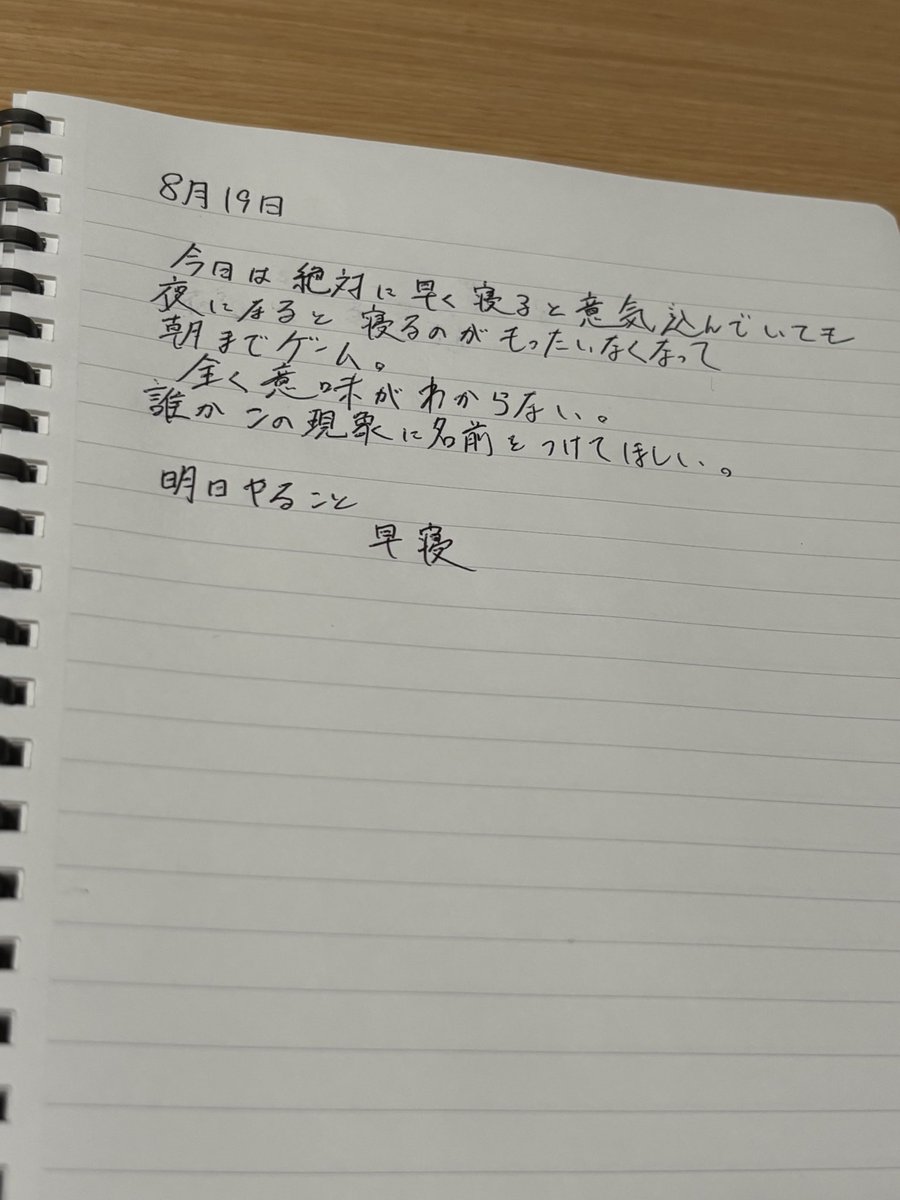 8月19日
今日は絶対に早く寝ると意気込んでいても
夜になると寝るのがもったいなくなって
朝までゲーム。
全く意味がわからない。
誰かこの現象に名前をつけてほしい。
明日やること
早寝